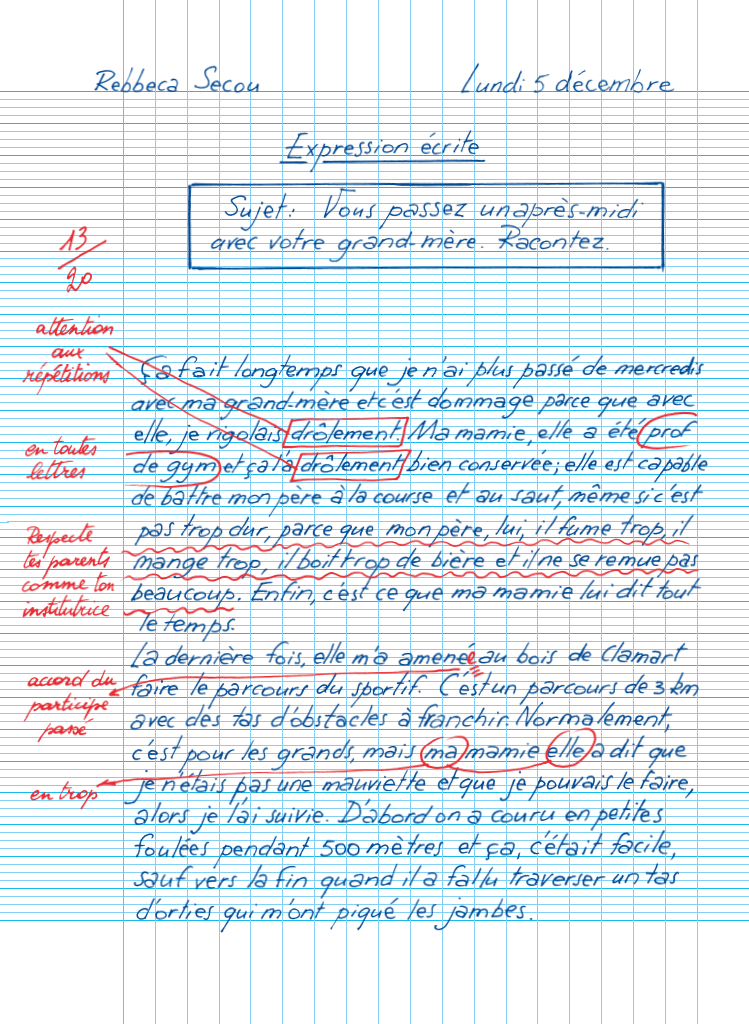 Rebbeca Secou
Lundi 5 décembre
Expression écrite
Sujet: Vous passez un après-midi
avec votre grand-mère. Racontez.
13
20
attention
aux
répétitions
Ça fait longtemps que je n'ai plus passé de mercredis
avec ma grand-mère et c'est dommage parce que avec
elle, je rigolais drôlement. Ma mamie, elle a été prof
en toutes
lettres
de gym et ça l'a drôlement bien conservée; elle est capable
de battre mon père à la course et au saut, même si c'est
Respecte
tes parents
comme ton
institutrice
pas trop dur, parce que mon père, lui, il fume trop, il
mange trop, il boit trop de bière et il ne se remue pas
beaucoup. Enfin, c'est ce que ma mamie lui dit tout
le temps.
La dernière fois, elle m'a amenée au bois de Clamart
accord du
participe
passé
faire le parcours du sportif. C'est un parcours de 3 km
avec des tas d'obstacles à franchir. Normalement,
c'est pour les grands, mais ma mamie elle a dit que
en trop
je n'étais pas une mauviette et que je pouvais le faire,
alors je l'ai suivie. D'abord on a couru en petites
foulées pendant 500 mètres et ça, c'était facile,
sauf vers la fin quand il a fallu traverser un tas
d'orties qui m'ont piqué les jambes.